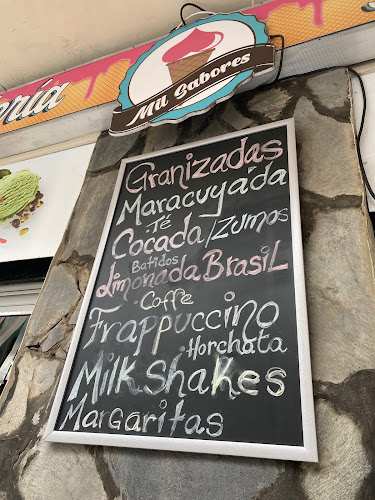 ería
Mil Sabores
Granizadas
Maracuyada
Té
Cocada/Zumos
Batidos
Limonada BrasiL
Coffe
Frappuccino
Horchata
MilK Shakes
Margaritas